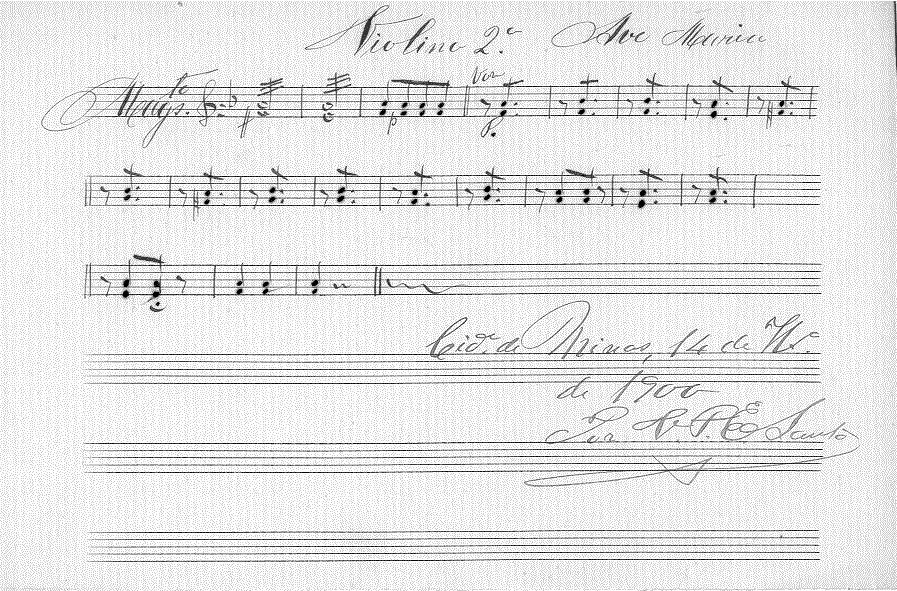 Violino 2.º Ave Maria
Mags.to
Voz
p
Cid.e de Minas, 14 de
de 1900
Por P. E Santo